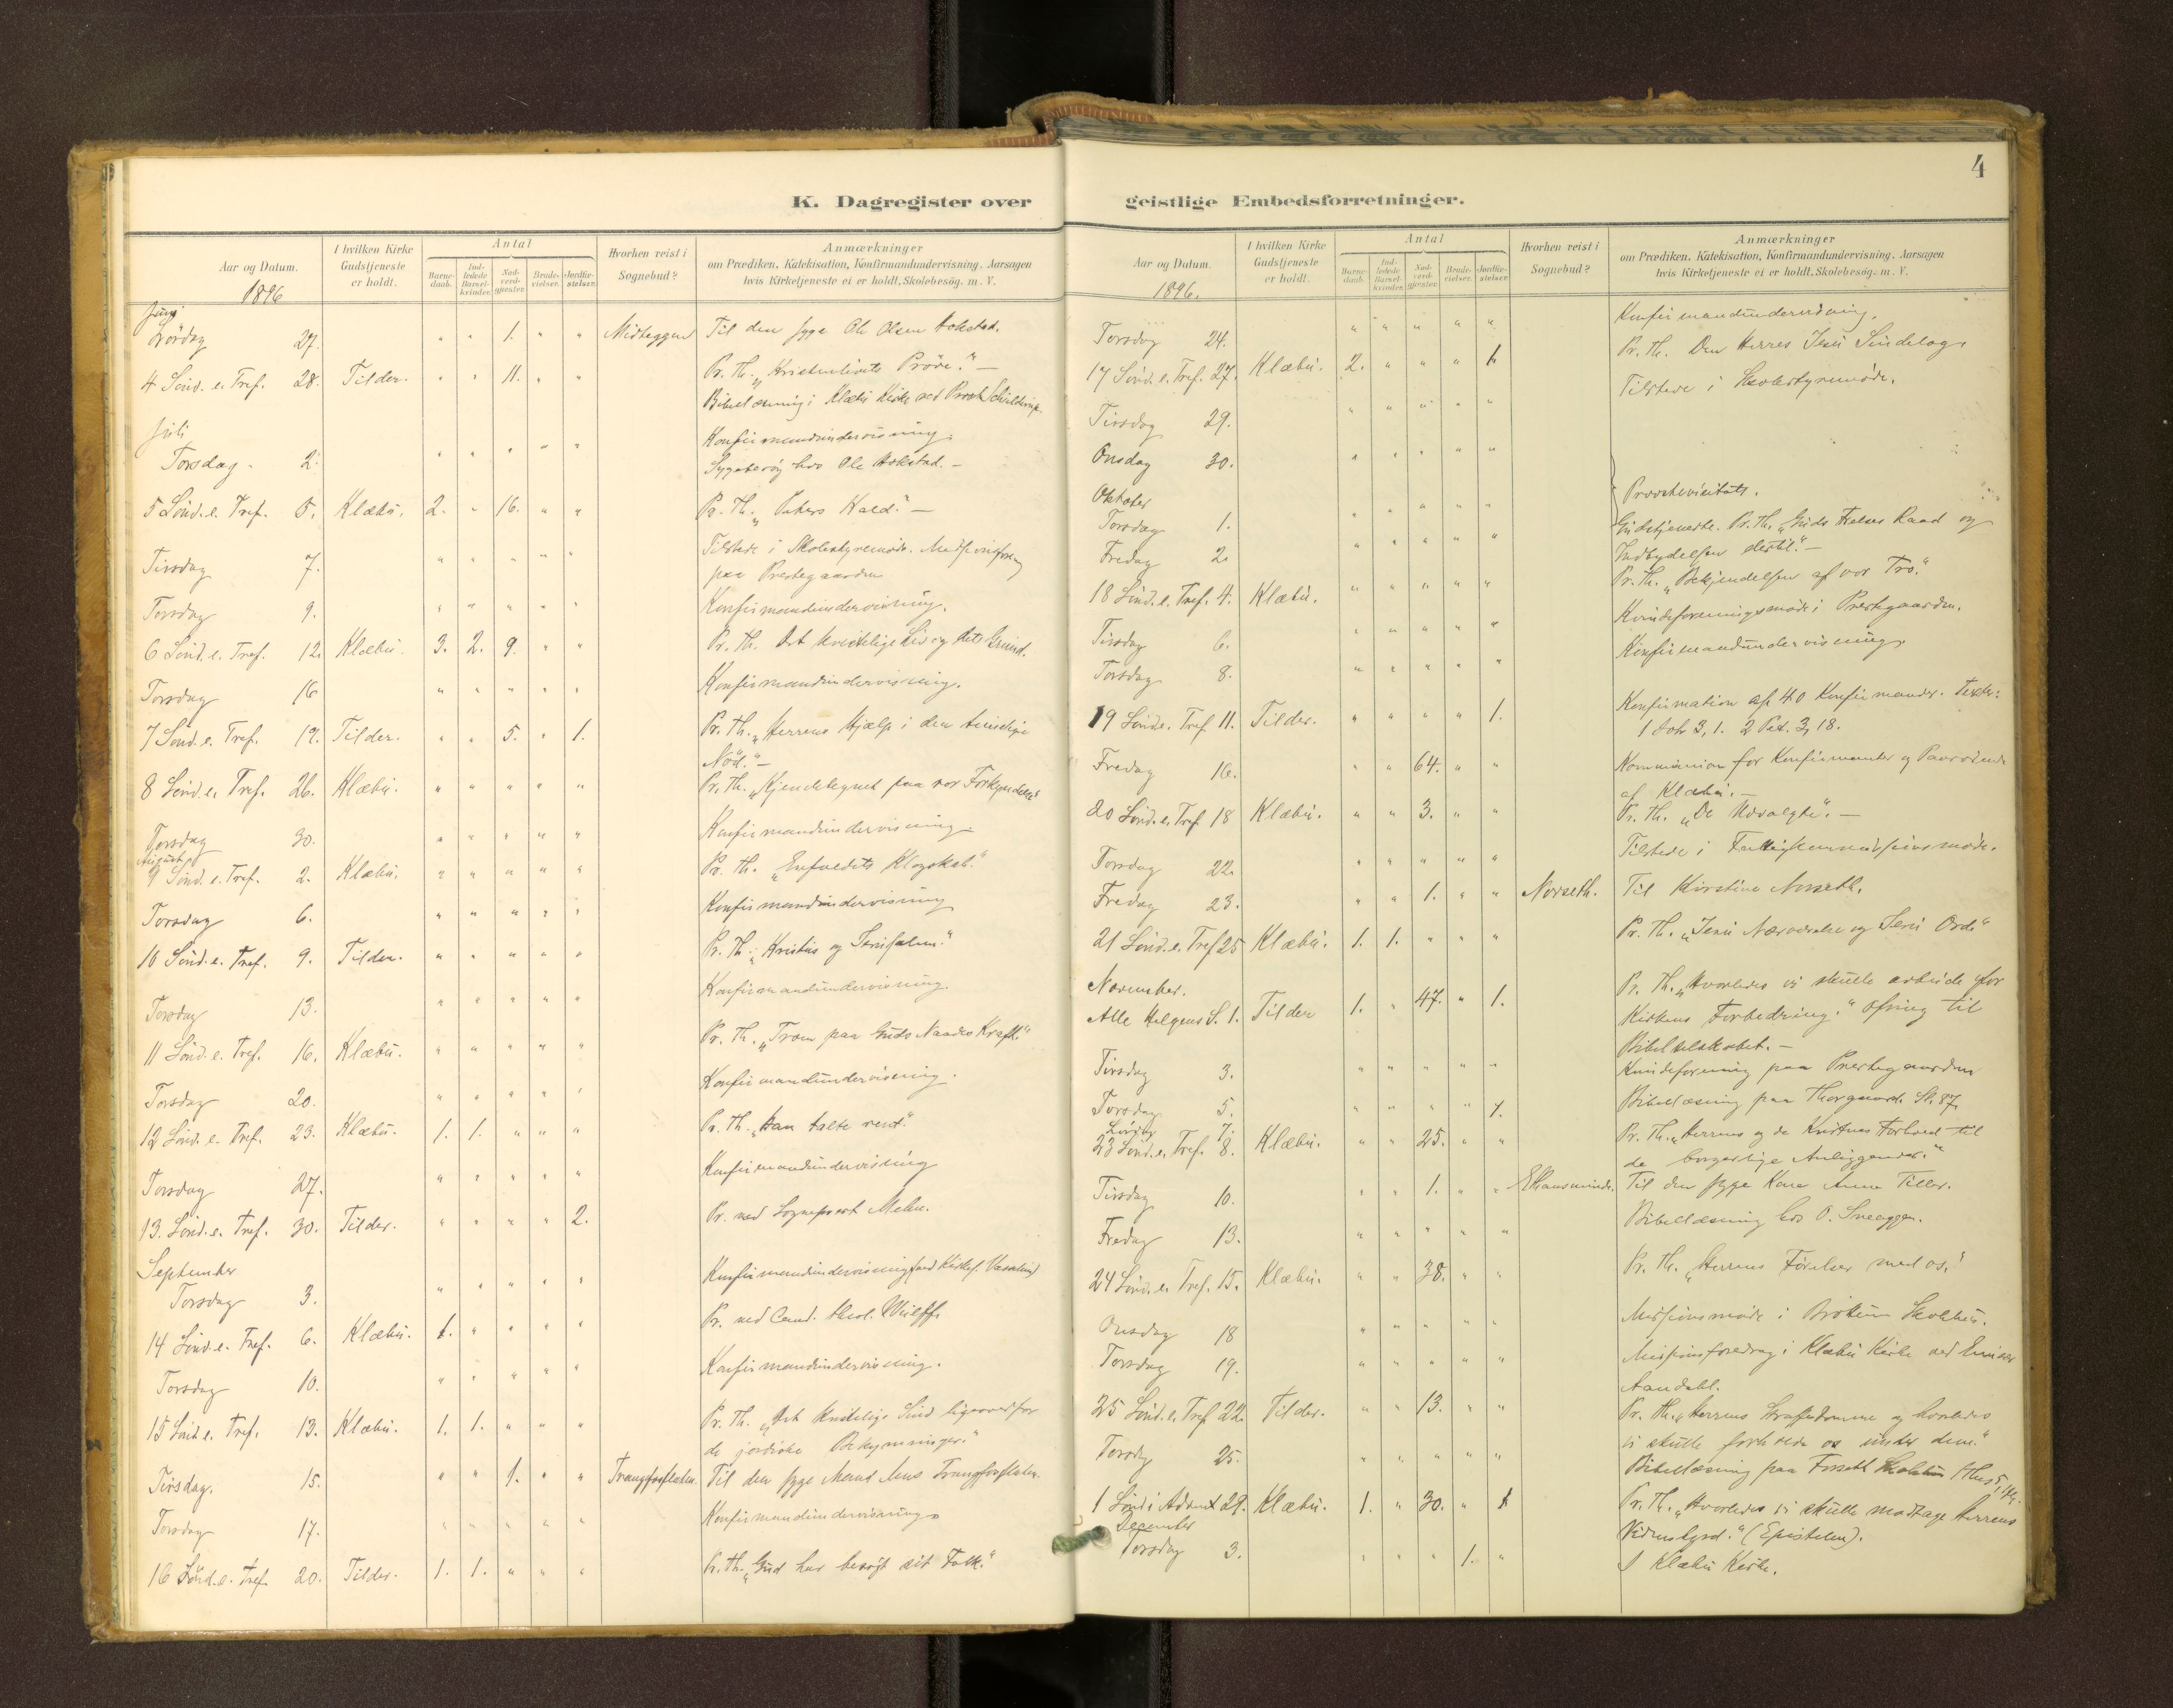 K. Dagregister over
Aar og Datum.
1896
I hvilken Kirke Gudstjeneste er holdt.
Antal
Barne-daab.
Ind-ledede Barsel-kvinder.
Nad-verd-gjester.
Brude-vielser.
Jordfæ-stelser.
Hvorhen reist i Sognebud?
Anmærkninger
om Prædiken, Katekisation, Konfirmandundervisning, Aarsagen
hvis Kirketjeneste ei er holdt, Skolebesøg. m. V.
Juni
Lørdag 27. " " 1. " " Midteggen Til den syge Ole Olsen Hokstad.
4 Sönd. e. Tref. 28. Tilder. " " 11. " " Pr. Th. „Kristenlivets Prøve." —
Bibellæsning i Klæbu Kirke ved Provst
Juli
Torsdag 2. " " " " " Konfirmandundervisning.
Sygebesøg hos Ole Hokstad. —
5 Sönd. e. Tref. 5. Klæbu. 2. " 16. " " Pr. Th. „Peters Kald." —
Tirsdag 7. " " " " " Tilstede i Skolestyremøde.
paa Prestegaarden
Torsdag 9. " " " " " Konfirmandundervisning.
6 Sönd. e. Tref. 12. Klæbu. 3. 2. 9. " " Pr. Th. Det kristelige Liv og dets Grund.
Torsdag 16 " " " " " Konfirmandundervisning.
7 Sönd. e. Tref. 19. Tilder. " " 5. " 1. Pr. Th. „Herrens Hjælp i den timelige
Nöd." —
8 Sönd. e. Tref. 26. Klæbu. " " " " " Pr. Th. „Kjendetegnet paa vor Forkyndelse
Torsdag 30. " " " " " Konfirmandundervisning
August
9 Sönd. e. Tref. 2. Klæbu. " " " " " Pr. Th. „Enfoldets Klogskab."
Torsdag 6. " " " " " Konfirmandundervisning
10 Sönd. e. Tref. 9. Tilder. " " " " " Pr. Th. „Kristus og Jerusalem."
Torsdag 13. " " " " " Konfirmandundervisning.
11 Sönd. e. Tref. 16. Klæbu. " " " " " Pr. Th. „Troen paa Guds Naades Kraft."
Torsdag 20. " " " " " Konfirmandundervisning.
12 Sönd. e. Tref. 23. Klæbu. 1. 1. " " " Pr. Th. „Han talte rent."
Torsdag 27. " " " " " Konfirmandundervisning
13. Sönd. e. Tref. 30. Tilder. " " " " 2. Pr. ved Sogneprest
September
Torsdag 3. " " " " " Konfirmandundervisning
14 Sönd. e. Tref. 6. Klæbu. 1. " " " " Pr. ved Cand. theol. Wulff
Torsdag 10. " " " " " Konfirmandundervisning.
15 Sönd. e. Tref. 13. Klæbu. 1. 1. " " " Pr. Th. „Det kristelige Sind ligeoverfor
de jordiske Bekymringer."
Tirsdag. 15. " " 1. " " Trangfosflaten. Til den syge Mand Jens Trangfosflaten.
Torsdag 17. " " " " " Konfirmandundervisning
16 Sönd. e. Tref. 20. Tilder. 1. 1. " " " Pr. Th. „Gud har besøgt sit Folk."
4
geistlige Embedsforretninger.
Aar og Datum.
1896.
I hvilken Kirke Gudstjeneste er holdt.
Antal
Barne-daab.
Ind-ledede Barsel-kvinder.
Nad-verd-gjester.
Brude-vielser.
Jordfæ-stelser.
Hvorhen reist i Sognebud?
Anmærkninger
om Prædiken, Katekisation, Konfirmandundervisning, Aarsagen
hvis Kirketjeneste ei er holdt, Skolebesøg. m. V.
Torsdag 24. " " " " " Konfirmandundervisning.
17 Sönd. e. Tref. 27. Klæbu. 2. " " " 1 Pr. Th. Den Herres Jesu Sindelag.
Tirsdag 29. " " " " " Tilstede i Skolestyremøde.
Onsdag 30. " " " " "
Oktober
Torsdag 1. " " " " " Provstevisitats.
Fredag 2. " " " " " Gudstjeneste. Pr. Th. „Guds Frelses Raad og
Indbydelsen dertil." —
18 Sönd. e. Tref. 4. Klæbu. " " " " " Pr. Th. „Bekjendelsen af vor Tro."
Tirsdag 6. " " " " " Kvindeforeningsmøde i Prestegaarden.
Torsdag 8. " " " " " Konfirmandundervisning
19 Sönd. e. Tref. 11. Tilder. " " " " 1. Konfirmation af 40 Konfirmander. Text:
1 Joh 3, 1. 2 Pet. 3, 18.
Fredag 16. " " 64. " " Kommunion for Konfirmander og Paarørende
af Klæbu. —
20 Sönd. e. Tref. 18 Klæbu. " " 3. " " Pr. Th. „De Udvalgte". —
Torsdag 22. " " " " " Tilstede i
Fredag 23. " " 1. " " Norseth. Til Kirstine Norseth.
21 Sönd. e. Tref. 25 Klæbu. 1. 1. " " " Pr. Th. „Jesu Nærværelse og Jesu Ord."
November.
Alle Helgens S. 1. Tilder 1. " 47. " 1. Pr. Th. „Hvorledes vi skulle arbeide for
Kirkens Forbedring." Ofring til
Bibelselskabet. —
Tirsdag 3. " " " " " Kvindeforening paa Prestegaarden
Torsdag 5. " " " " 1. Bibellæsning paa
Lørdag 7.
23 Sönd. e. Tref. 8. Klæbu. " " 25. " " Pr. Th. „Herrens og de Kristnes Forhold til
de borgerlige Anliggender."
Tirsdag 10. " " 1. " " Til den syge Kone Anna Tiller.
Fredag 13. " " " " " Bibellæsning hos O.
24 Sönd. e. Tref. 15. Klæbu. " " 38. " " Pr. Th. „Herrens Førelser med os."
Onsdag 18 " " " " " Missionsmøde i Bröttum Skolehus.
Torsdag 19. " " " " " Missionsforedrag i Klæbu Kirke ved Emissær
Aandahl.
25 Sönd. e. Tref. 22. Tilder. " " 13. " " Pr. Th. „Herrens Straffedomme og hvorledes
vi skulle forholde os under dem."
Torsdag 25. " " " " " Bibellæsning paa Forseth
1 Sönd i Advent 29. Klæbu. 1. " 30. " 1 Pr. Th. „Hvorledes vi skulle modtage Herrens
(Epistelen).
December
Torsdag 3. " " " 1. " I Klæbu Kirke.